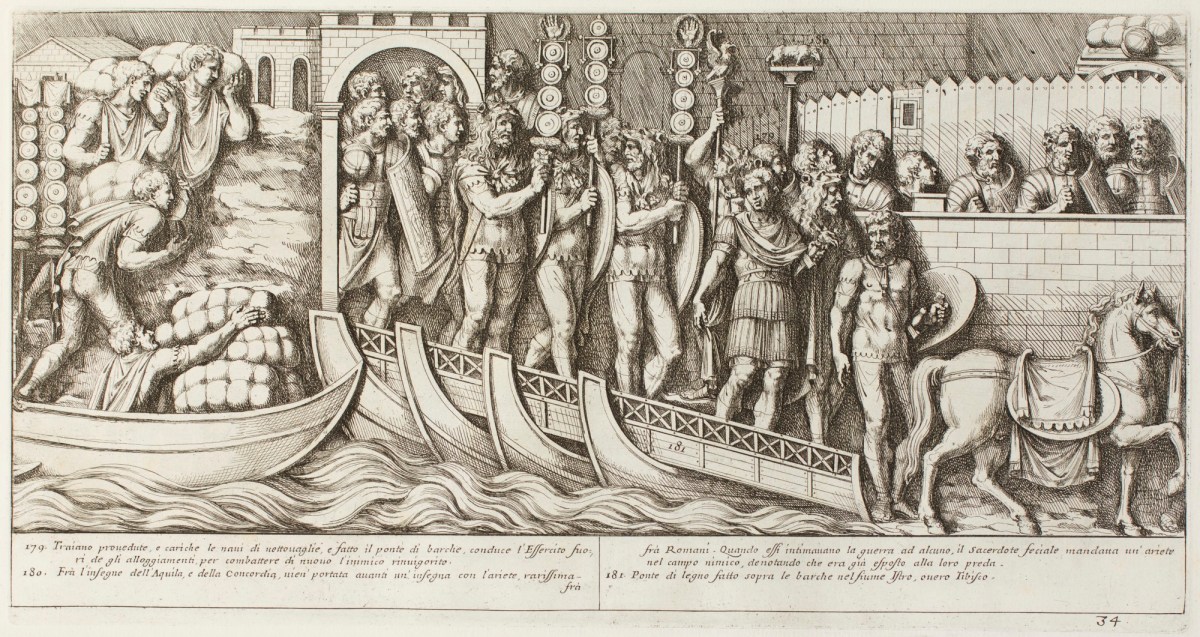 180
179
181
179. Traiano prouedute, e cariche le naui di uettouaglie, e fatto il ponte di barche, conduce l'Essercito fuo,
ri de gli alloggiamenti, per combattere di nuouo l'inimico rinuigorito.
180. Frà l'insegne dell'Aquila, e della Concordia, uien' portata auanti un' insegna con l'ariete, rarissima
frà
frà Romani. Quando essi intimauano la guerra ad alcuno, il sacerdote feciale mandaua un' ariete
nel campo nimico, denotando che era già esposto alla loro preda.
181. Ponte di legno fatto sopra le barche nel fiume Istro, ouero Tibisco.
34